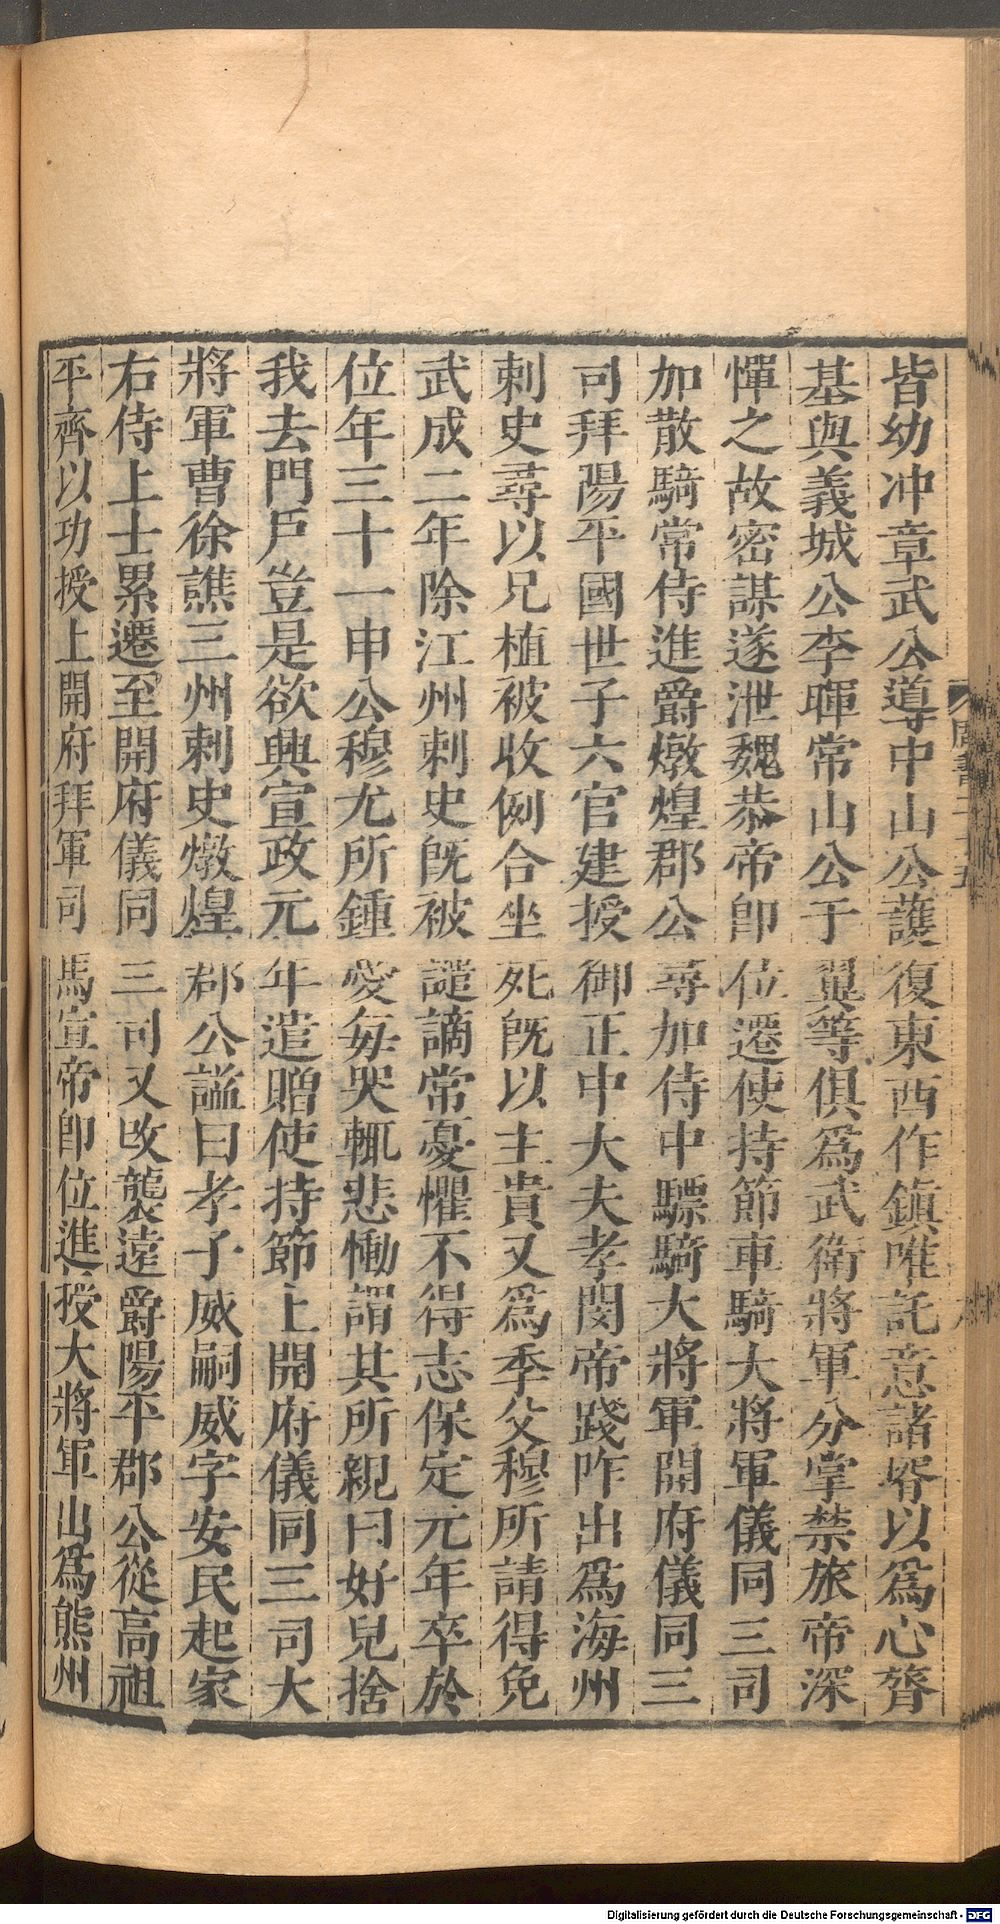 皆幼冲章武公導中山公護復東西作鎭唯託意諸壻以爲心膂
基與義城公李暉常山公于翼等俱爲武衛將軍分掌禁旅帝深
憚之故密謀遂泄魏恭帝卽位遷使持節車騎大將軍儀同三司
加散騎常侍進爵燉煌郡公尋加侍中驃騎大將軍開府儀同三
司拜陽平國世子六官建授御正中大夫孝閔帝踐阼出爲海州
刺史尋以兄植被收例合坐死旣以主貴又爲季父穆所請得免
武成二年除江州刺史旣被譴謫常憂懼不得志保定元年卒於
位年三十一申公穆尤所鍾愛每哭輒悲慟謂其所親曰好兒捨
我去門戶豈是欲興宣政元年追贈使持節上開府儀同三司大
將軍曹徐譙三州刺史燉煌郡公謚曰孝子威嗣威字安民起家
右侍上士累遷至開府儀同三司又改襲遠爵陽平郡公從高祖
平齊以功授上開府拜軍司馬宣帝卽位進授大將軍出爲熊州
Digitalisierung gefördert durch die Deutsche Forschungsgemeinschaft - DFG